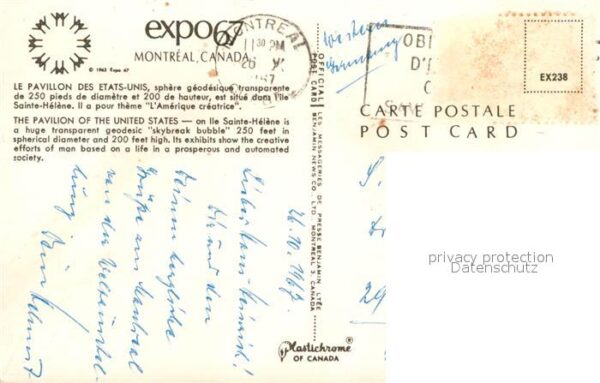 expo67
MONTRÉAL, CANADA
© 1963 Expo 67
LE PAVILLON DES ETATS-UNIS, sphère géodésique transparente
de 250 pieds de diamètre et 200 de hauteur, est situé dans l'île
Sainte-Hélène. Il a pour thème "L'Amérique créatrice".
THE PAVILION OF THE UNITED STATES — on Ile Sainte-Hélène is
a huge transparent geodesic "skybreak bubble" 250 feet in
spherical diameter and 200 feet high. Its exhibits show the creative
efforts of man based on a life in a prosperous and automated
society.
MONTREAL
PM
Western
Germany
EX238
CARTE POSTALE
POST CARD
OFFICIAL POST CARD
LES MESSAGERIES DE PRESSE BENJAMIN, LTÉE
BENJAMIN NEWS CO. LTD., MONTREAL 3, CANADA
26.10.1967
Lieber Hans-Heinrich!
Dir und den
Deinen herzliche
Grüße aus Montreal
von der Weltausstel-
lung. Dein
29
Plastichrome®
OF CANADA
privacy protection
Datenschutz